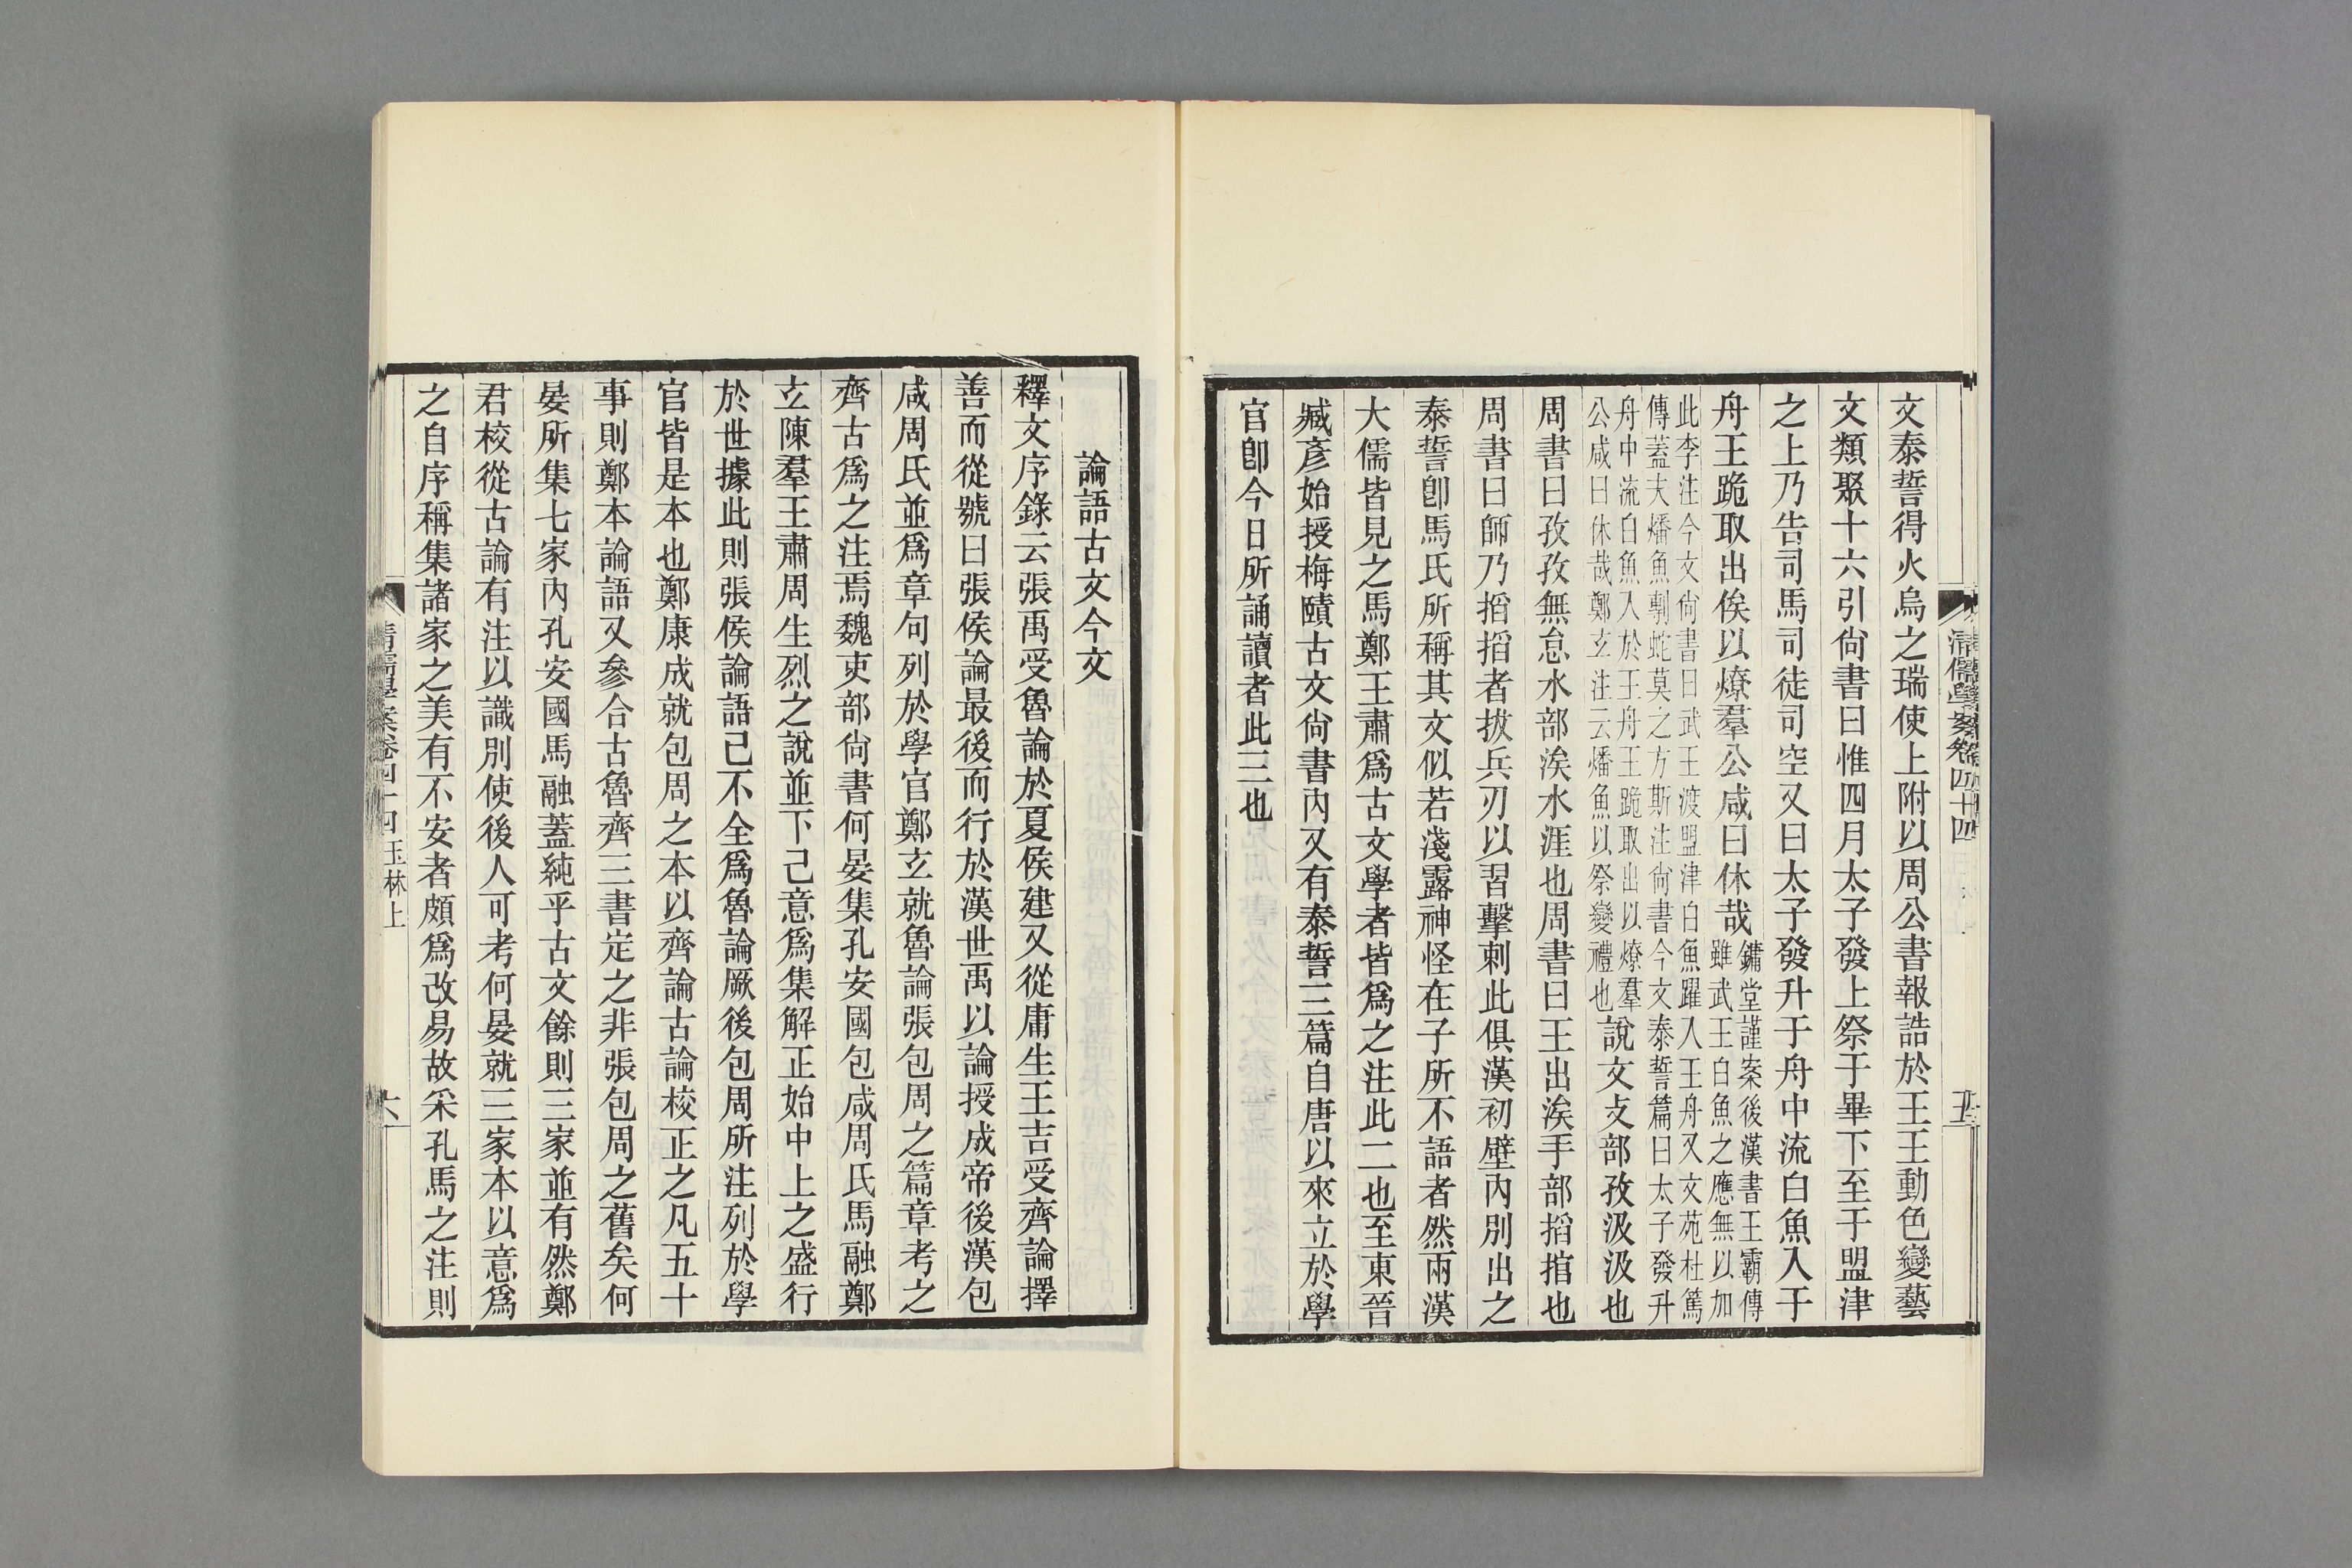 文泰誓得火烏之瑞使上附以周公書報誥於王王動色變藝
文類聚十六引尙書曰惟四月太子發上祭于畢下至于盟津
之上乃告司馬司徒司空又曰太子發升于舟中流白魚入于
舟王跪取出俟以燎羣公咸曰休哉
鏞堂謹案後漢書王霸傳
雖武王白魚之應無以加
此李注今文尙書曰武王渡盟津白魚躍入王舟又文苑杜篤
傳蓋夫燔魚剸蛇莫之方斯注尙書今文泰誓篇曰太子發升
舟中流白魚入於王舟王跪取出以燎羣
公咸曰休哉鄭玄注云燔魚以祭變禮也
說文攴部孜汲汲也
周書曰孜孜無怠水部涘水涯也周書曰王出涘手部搯捾也
周書曰師乃搯搯者拔兵刃以習擊刺此俱漢初壁內別出之
泰誓卽馬氏所稱其文似若淺露神怪在子所不語者然兩漢
大儒皆見之馬鄭王肅爲古文學者皆爲之注此二也至東晉
臧彥始授梅賾古文尙書內又有泰誓三篇自唐以來立於學
官卽今日所誦讀者此三也
清儒學案卷四十四
五
論語古文今文
釋文序錄云張禹受魯論於夏侯建又從庸生王吉受齊論擇
善而從號曰張侯論最後而行於漢世禹以論授成帝後漢包
咸周氏並爲章句列於學官鄭玄就魯論張包周之篇章考之
齊古爲之注焉魏吏部尙書何晏集孔安國包咸周氏馬融鄭
玄陳羣王肅周生烈之說並下己意爲集解正始中上之盛行
於世據此則張侯論語已不全爲魯論厥後包周所注列於學
官皆是本也鄭康成就包周之本以齊論古論校正之凡五十
事則鄭本論語又參合古魯齊三書定之非張包周之舊矣何
晏所集七家內孔安國馬融蓋純乎古文餘則三家並有然鄭
君校從古論有注以識別使後人可考何晏就三家本以意爲
之自序稱集諸家之美有不安者頗爲改易故采孔馬之注則
清儒學案卷四十四 玉林上
六